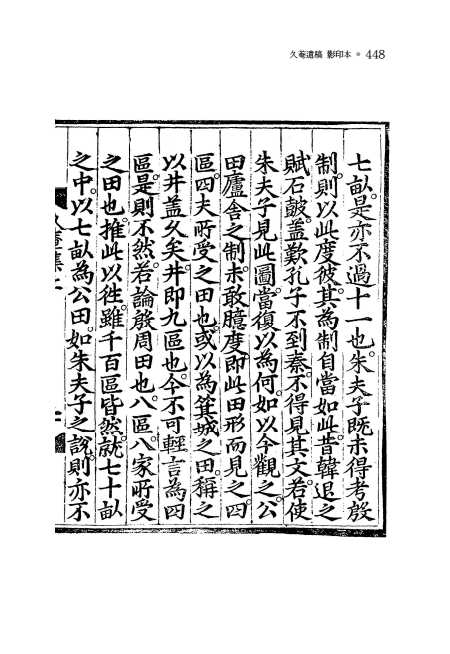 久菴遺稿 影印本 ◦ 448
七畝。是亦不過十一也。朱夫子既未得考殷
制。則以此度彼。其為制自當如此。昔韓退之
賦石皷。蓋歎孔子不到秦。不得見其文。若使
朱夫子見此圖。當復以為何如。以今觀之。公
田廬舍之制。未敢臆度。即此田形而見之。四
區。四夫所受之田也。或以為箕城之田。稱之
以井蓋久矣。井即九區也。今不可輕言為四
區。是則不然。若論殷周田也。八區。八家所受
之田也。推此以徃。雖千百區皆然。就七十畝
之中。以七畝為公田。如朱夫子之說。則亦不